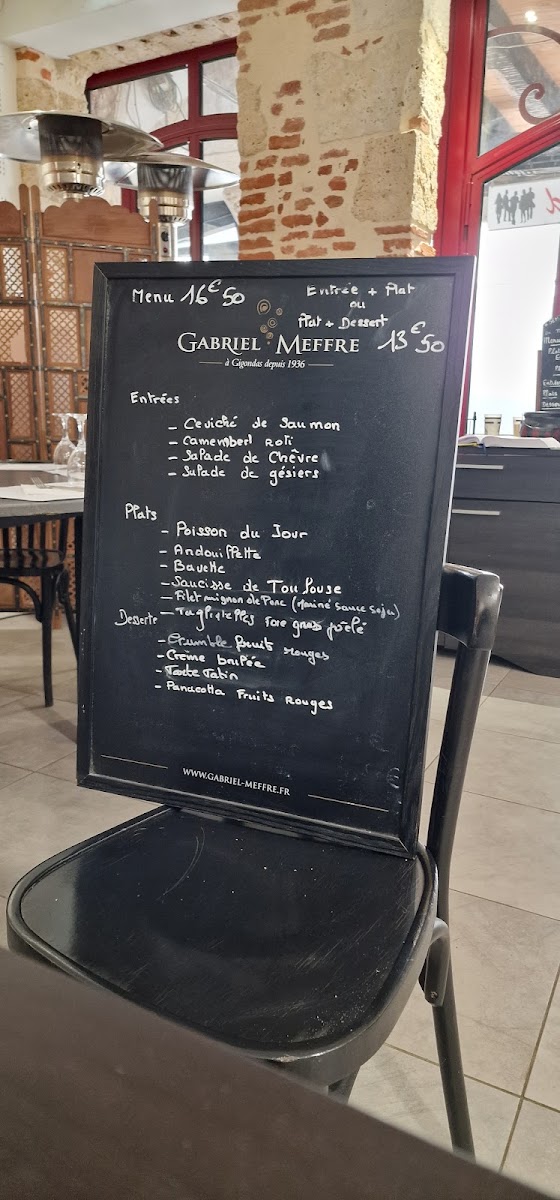 Menu 16€50
Entrée + Plat
ou
Plat + Dessert 13€50
GABRIEL MEFFRE
à Gigondas depuis 1936
Entrées
- Ceviché de Saumon
- Camembert Roti
- Salade de Chêvre
- Salade de gésiers
Plats
- Poisson du Jour
- Andouillette
- Bavette
- Saucisse de Toulouse
- Filet mignon de Porc (mariné sauce soja)
- Tagliatelles foie gras poêlé
Desserts
- Crumble fruits rouges
- Crème brulée
- Tarte Tatin
- Panacotta Fruits Rouges
WWW.GABRIEL-MEFFRE.FR